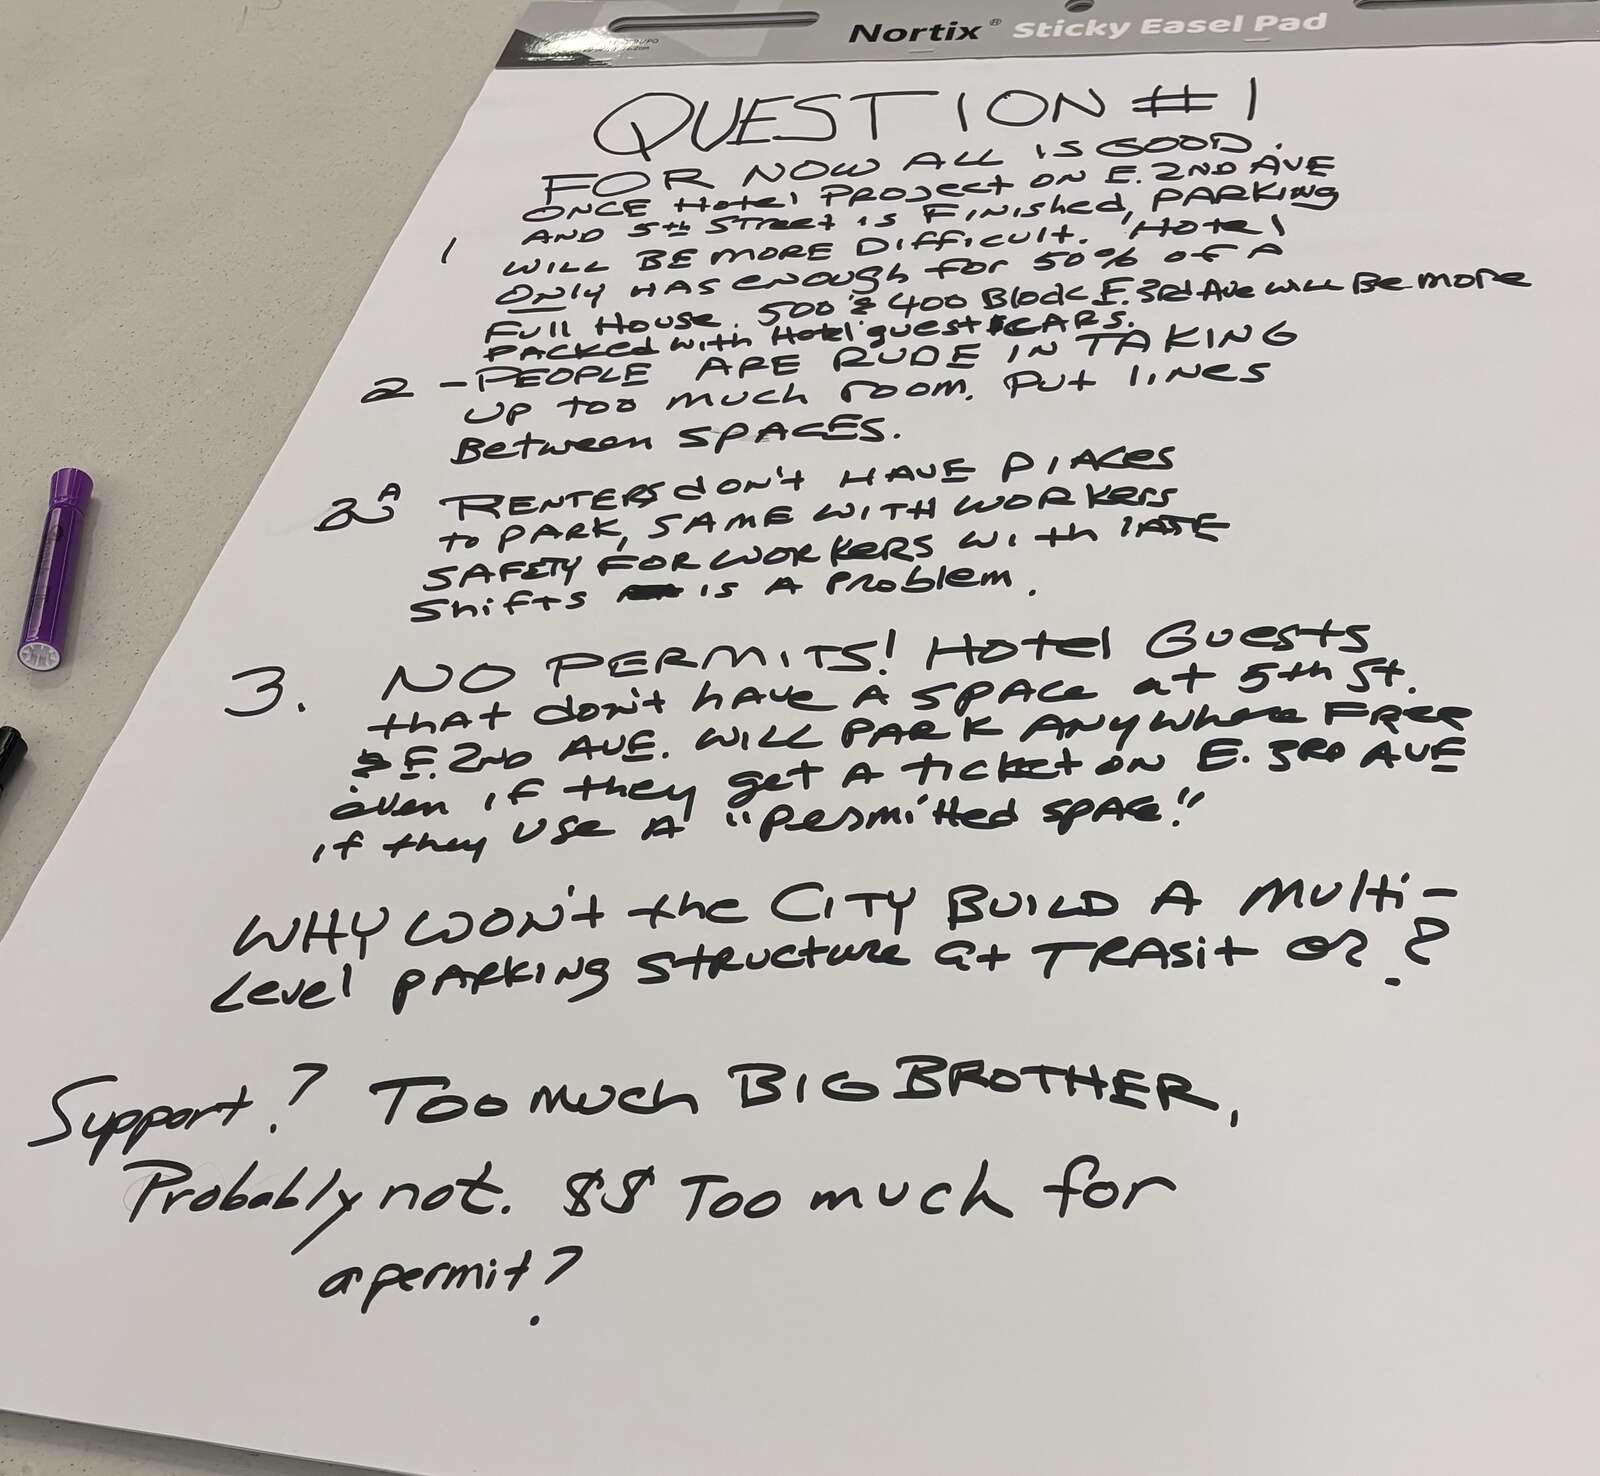 Nortix® Sticky Easel Pad
QUESTION #1
FOR NOW ALL IS GOOD.
ONCE Hotel PROJECT ON E. 2ND AVE
AND 5th STREET is FiNisHed, PARKiNg
1 WILL BE MORE DIFFiCULT. "Hotel
ONly HAS enough for 50% of A
Full House. 500 & 400 Block E. 3rd Ave will Be more
PACKed with Hotel guest CARS.
2 - PEOPLE ARE RUDE IN TAKING
UP TOO MUCH room. Put lines
Between SPACES.
2A RENTERS don't HAVE PlAces
to PARK, SAME WITH WORKers
SAFETY FOR WORKERS With lATE
Shifts is A Problem.
3. NO PERMITS! Hotel Guests
that don't have A SPACe at 5th St.
& E. 2ND AVE. WILL PARK ANYwhere FREE
even if they get A ticket on E. 3RD AVE
if they use A "Permitted SPACe."
WHY WON't the CITY BUILD A Multi-
Level PARKING STRUCTURE at TRASit or?
Support? Too much BIG BROTHER,
Probably not. $$ Too much for
a permit?